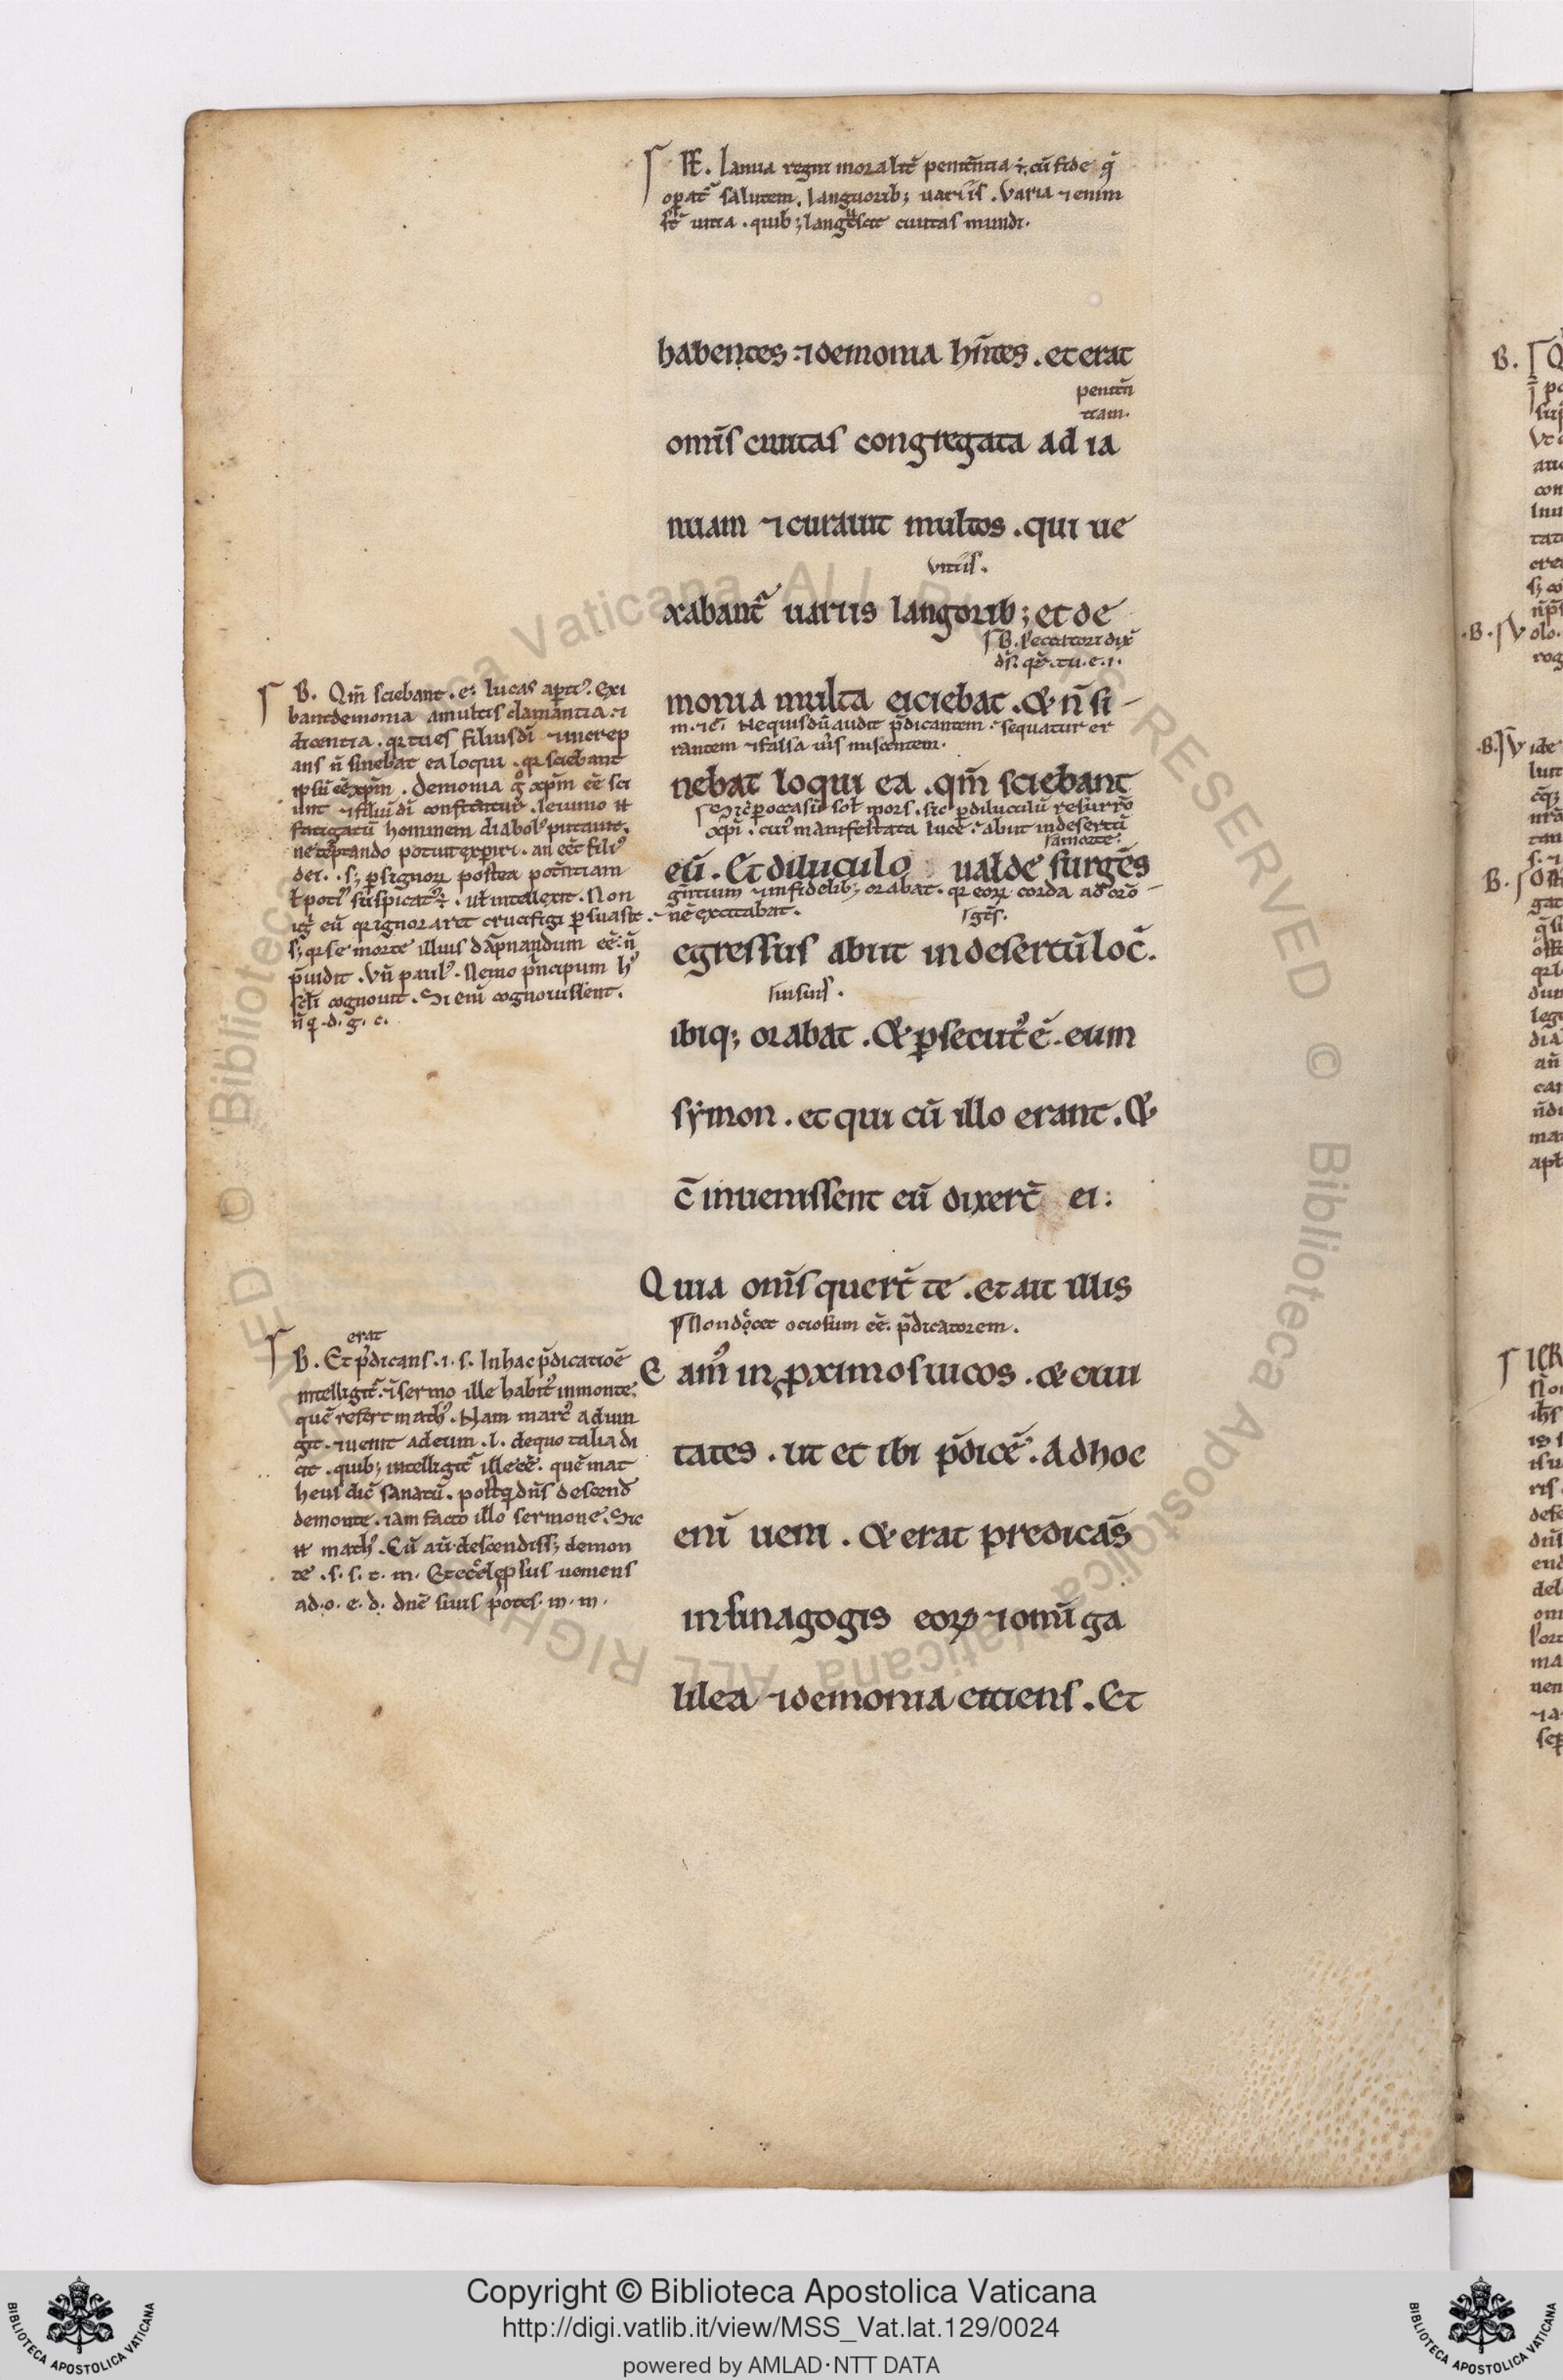 IE. Ianua regni moralit̃ penitñtia ÷ cũ fide q̃
oꝑat᷑ salutem. languorib; uariis. Varia ⁊ enim
st̃ uitia. quib; languescit ciuitas mundi.
habentes ⁊ demonia hñtes. et erat
penitñ
tiam.
om̃is ciuitas congregata ad ia
nuam ⁊ curauit multos. qui ue
vitiis.
xabant᷑ uariis langorib; et de
B. Peccatori dix̃
ds̃. q̃re. tu. e. i.
monia multa eiciebat. & ñ si
m. ⁊ c̃. Ne quis dũ audit p̃dicantem sequatur er
rantem ⁊ falsa ũis miscentem.
nebat loqui ea. qm̃ sciebant
Sic̃ ꝑ occasũ sol̃ mors. sic ꝑ diluculũ resurr̃o
xp̃i. cuiꝰ manifestata luce abiit in desertũ
a morte.
eũ. Et diluculo ualde surgẽs
gñtium ⁊ in fidelib; orabat. qr eoꝝ corda ad or̃o
nẽ excitabat.
gẽs.
egressus abiit in desertũ loc̃.
in suis.
ibiq; orabat. & ꝑsecutꝰ ẽ. eum
sẏmon. et qui cũ illo erant. &
c̃ inuenissent eũ dixer̃t ei:
Quia om̃s quer̃t te. et ait illis
Non docet ociosum eẽ. p̃dicatorem.
Eamꝰ in ꝓximos uicos. & ciui
tates. ut et ibi p̃dicẽ. Ad hoc
eni᷑ ueni. & erat predicãs
in sinagogis eoꝝ ⁊ omĩ ga
lilea ⁊ demonia eitiens. Et
B. Qm̃ sciebant. e. lucas aꝑtiꝰ. Exi
bant demonia a multis clamantia ⁊
dicentia. qr tu es filius di᷑ ⁊ increp
ans ñ sinebat ea loqui. qr sciebant
ip̃sũ eẽ xp̃m. Demonia g̊ xp̃m eẽ sci
unt ⁊ filiũ di᷑ confitentur. Ieiunio it
fatigatũ hominem diabolꝰ putauit.
ne tẽptando potuit exꝑiri. an eẽt filiꝰ
dei. s; ꝑ signoꝝ postea potñtiam
ł potiꝰ suspicatꝰ ÷. ut intellexit. Non
igr̃ eũ qr ignorarit crucifigi ꝑsuasit.
s; qr se morte illius dãpnandum eẽ ñ
p̃uidit. Vñ paulꝰ. Nemo p̃ncipum hꝰ
scl̃i cognouit. Si eni᷑ cognouissent.
ñ q. d. g. c.
erat
B. Et p̃dicans. i. s. In hac p̃dicatioẽ
intelligit᷑ sermo ille habitꝰ in monte.
quẽ refert mathꝰ. Nam marcꝰ adiun
git. ⁊ uenit ad eum. l. de quo talia di
cit. quib; intelligit᷑ ille eẽ. quẽ mat
heus dic̃ sanatũ. postq̃ dñs descend̃
de monte. iam facto illo sermone. Sic
it mathꝰ. Cũ aũ descendiss; de mon
te. s. s. t. m. Et ecc̃e lep̃sus ueniens
ad. o. e. d. dñe si uis potes. m. m.
Copyright © Biblioteca Apostolica Vaticana
http://digi.vatlib.it/view/MSS_Vat.lat.129/0024
powered by AMLAD·NTT DATA